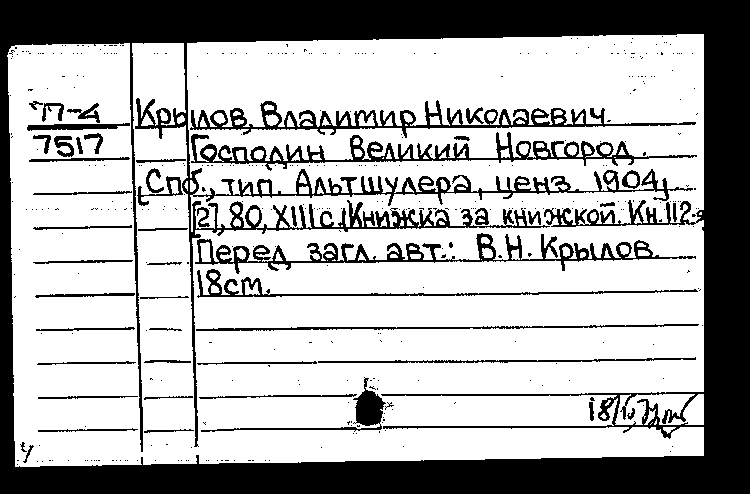 П-4
7517
Крылов, Владимир Николаевич.
Господин Великий Новгород.
[Спб., тип. Альтшулера, ценз. 1904]
[2], 80, XIII с. (Книжка за книжкой. Кн. 112-я
Перед загл. авт.: В.Н. Крылов.
18 см.